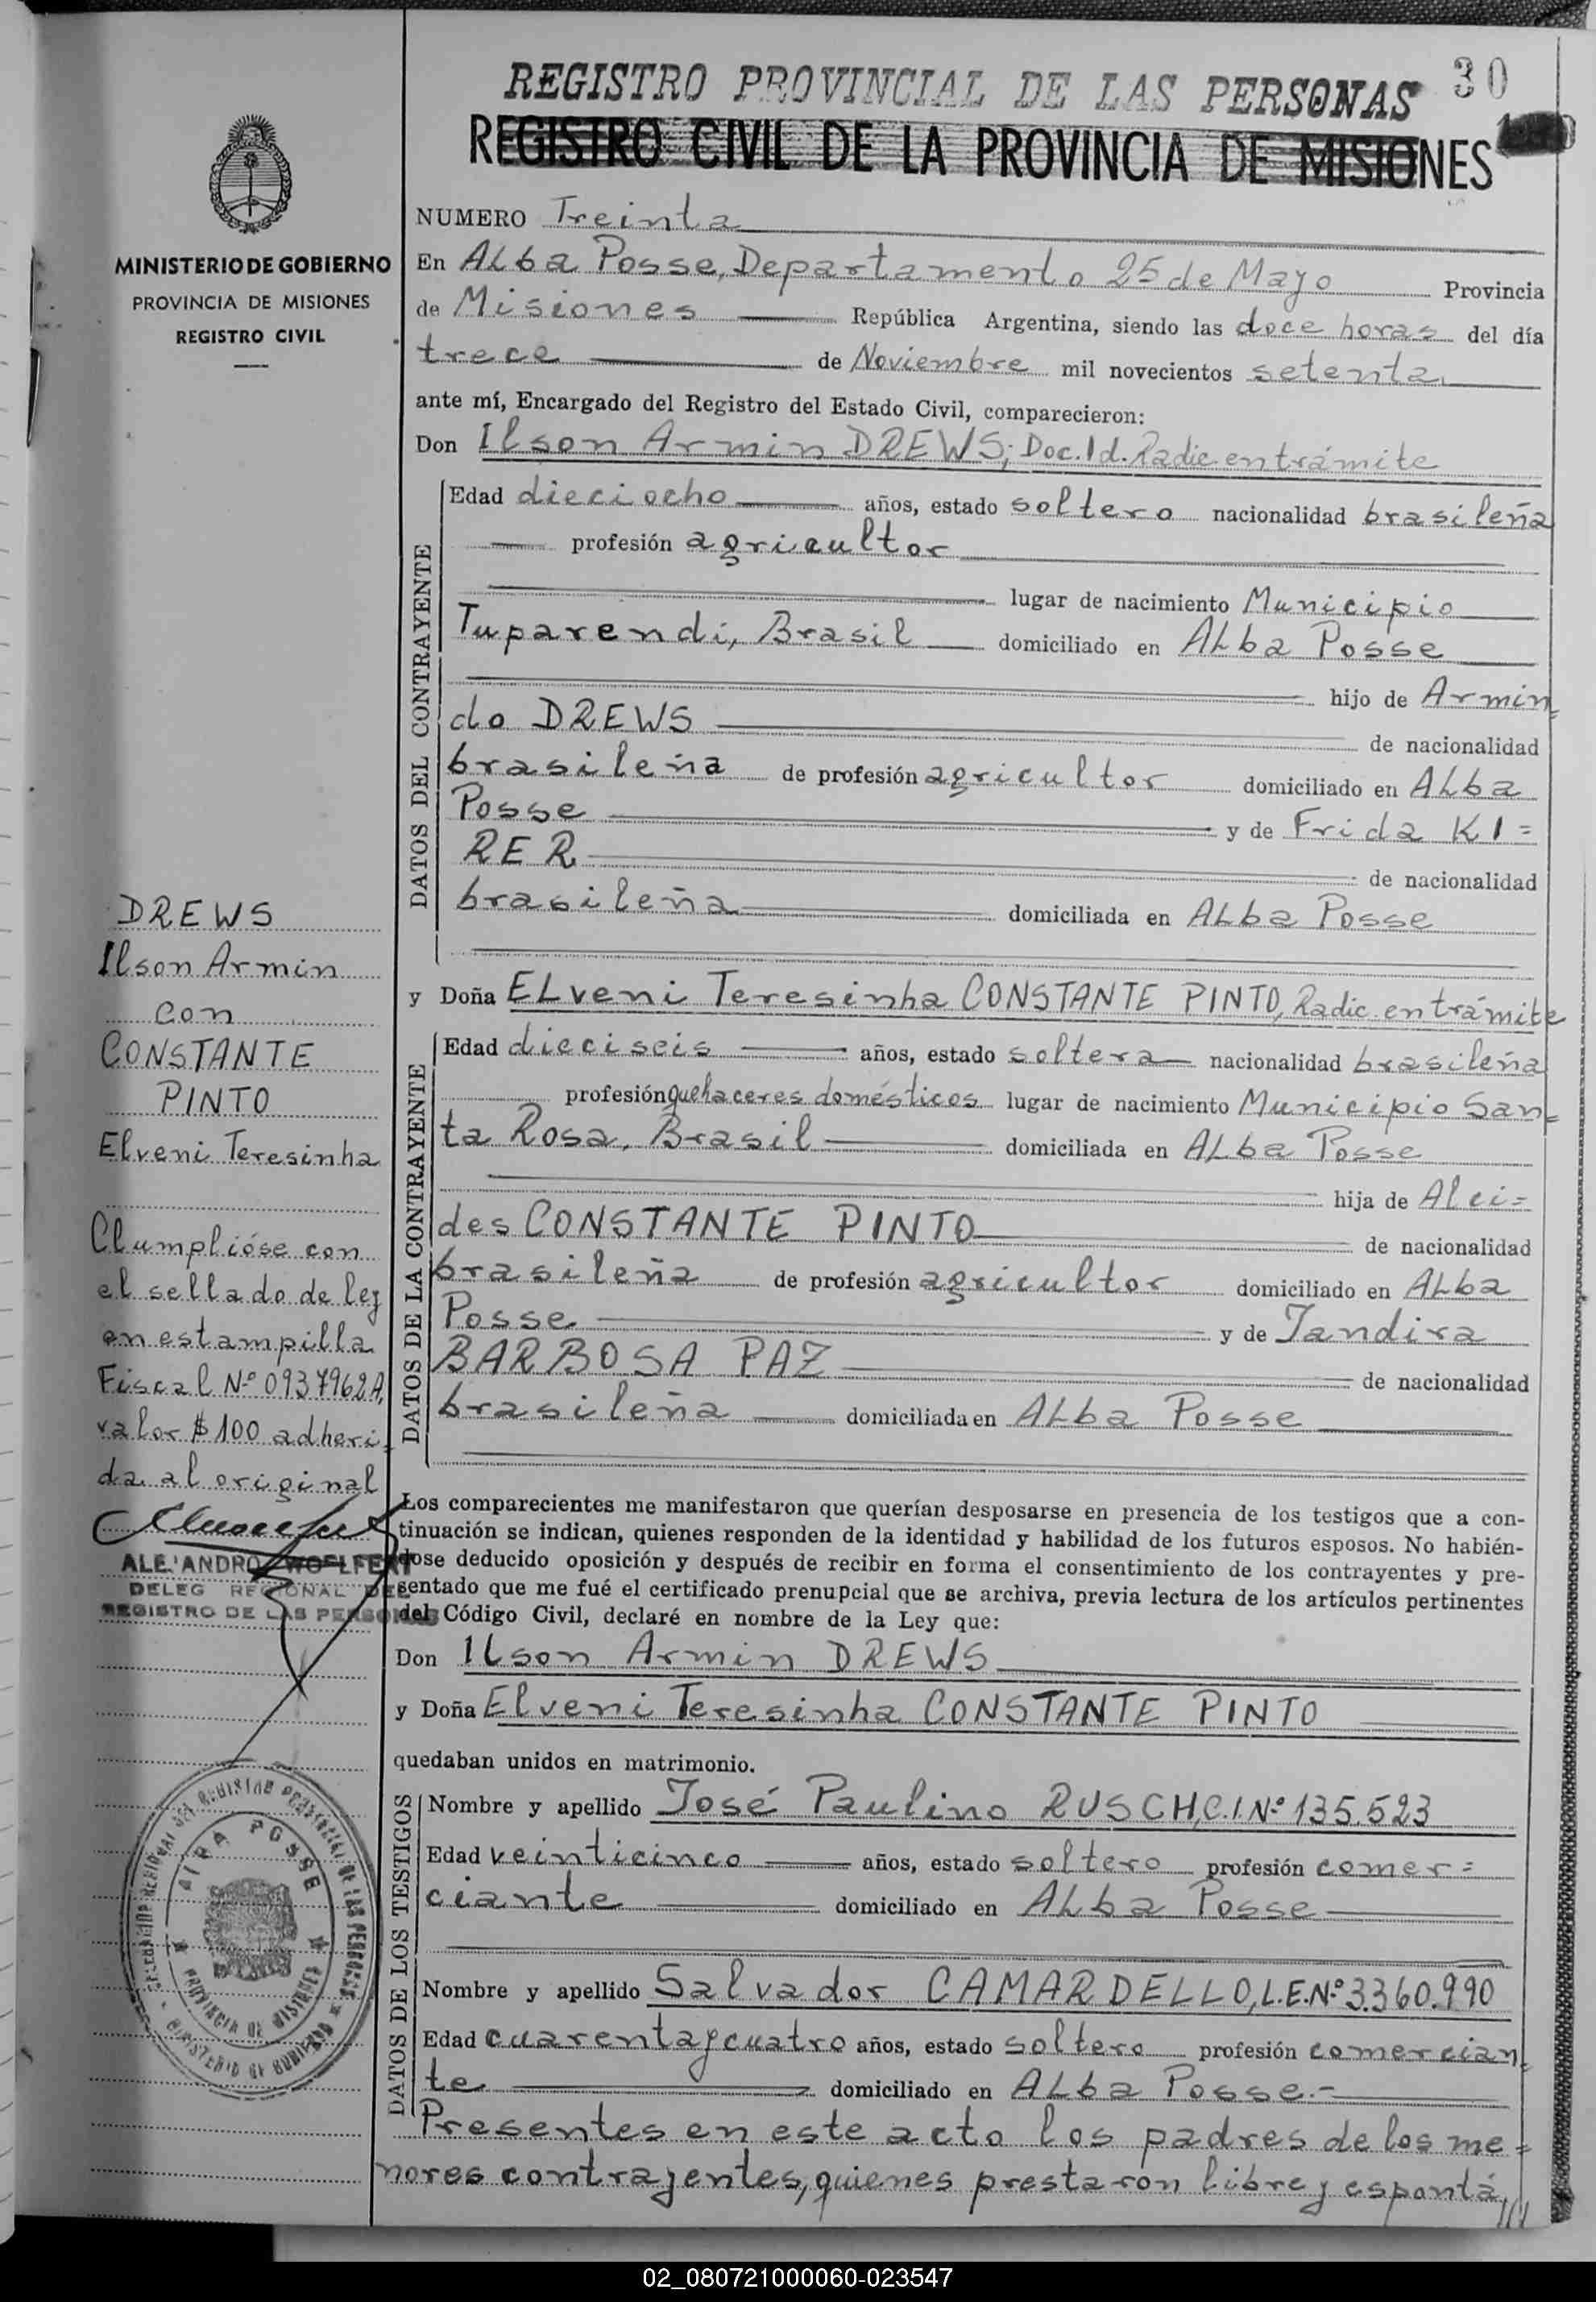 REGISTRO PROVINCIAL DE LAS PERSONAS 30
REGISTRO CIVIL DE LA PROVINCIA DE MISIONES
MINISTERIO DE GOBIERNO
PROVINCIA DE MISIONES
REGISTRO CIVIL
NUMERO Treinta
En Alba Posse, Departamento 25 de Mayo Provincia
de Misiones República Argentina, siendo las doce horas del día
trece de Noviembre mil novecientos setenta
ante mí, Encargado del Registro del Estado Civil, comparecieron:
Don Ilson Armin DREWS; Doc. Id. Radic en trámite
DATOS DEL CONTRAYENTE
Edad dieciocho años, estado soltero nacionalidad brasileña
profesión agricultor
lugar de nacimiento Municipio
Tuparendi, Brasil domiciliado en Alba Posse
hijo de Armin=
do DREWS de nacionalidad
brasileña de profesión agricultor domiciliado en Alba
Posse y de Frida KI=
RER de nacionalidad
brasileña domiciliada en Alba Posse
y Doña Elveni Teresinha CONSTANTE PINTO, Radic. en trámite
DATOS DE LA CONTRAYENTE
Edad dieciseis años, estado soltera nacionalidad brasileña
profesión quehaceres domésticos lugar de nacimiento Municipio San=
ta Rosa, Brasil domiciliada en Alba Posse
hija de Alci=
des CONSTANTE PINTO de nacionalidad
brasileña de profesión agricultor domiciliado en Alba
Posse y de Jandira
BARBOSA PAZ de nacionalidad
brasileña domiciliada en Alba Posse
Los comparecientes me manifestaron que querían desposarse en presencia de los testigos que a con-
tinuación se indican, quienes responden de la identidad y habilidad de los futuros esposos. No habién-
dose deducido oposición y después de recibir en forma el consentimiento de los contrayentes y pre-
sentado que me fué el certificado prenupcial que se archiva, previa lectura de los artículos pertinentes
del Código Civil, declaré en nombre de la Ley que:
Don Ilson Armin DREWS
y Doña Elveni Teresinha CONSTANTE PINTO
quedaban unidos en matrimonio.
DATOS DE LOS TESTIGOS
Nombre y apellido José Paulino RUSCH, C.I.Nº 135.523
Edad veinticinco años, estado soltero profesión comer=
ciante domiciliado en Alba Posse
Nombre y apellido Salvador CAMARDELLO, L.E.Nº 3.360.990
Edad cuarenta y cuatro años, estado soltero profesión comercian=
te domiciliado en Alba Posse.-
Presentes en este acto los padres de los me=
nores contrayentes, quienes prestaron libre y espontá
DREWS
Ilson Armin
con
CONSTANTE
PINTO
Elveni Teresinha
Cumplióse con
el sellado de ley
en estampilla
Fiscal Nº 0937962A,
valor $ 100 adheri=
da al original
ALEJANDRO WOLFERT
DELEG REGIONAL DEL
REGISTRO DE LAS PERSONAS
DELEGACION REGIONAL DEL REGISTRO PROVINCIAL DE LAS PERSONAS
ALBA POSSE
PROVINCIA DE MISIONES
MINISTERIO DE GOBIERNO
02_080721000060-023547